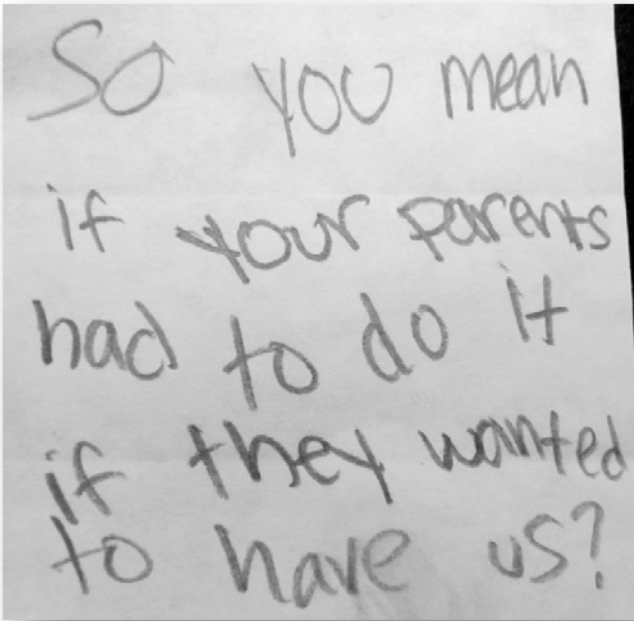 So you mean
if your parents
had to do it
if they wanted
to have us?